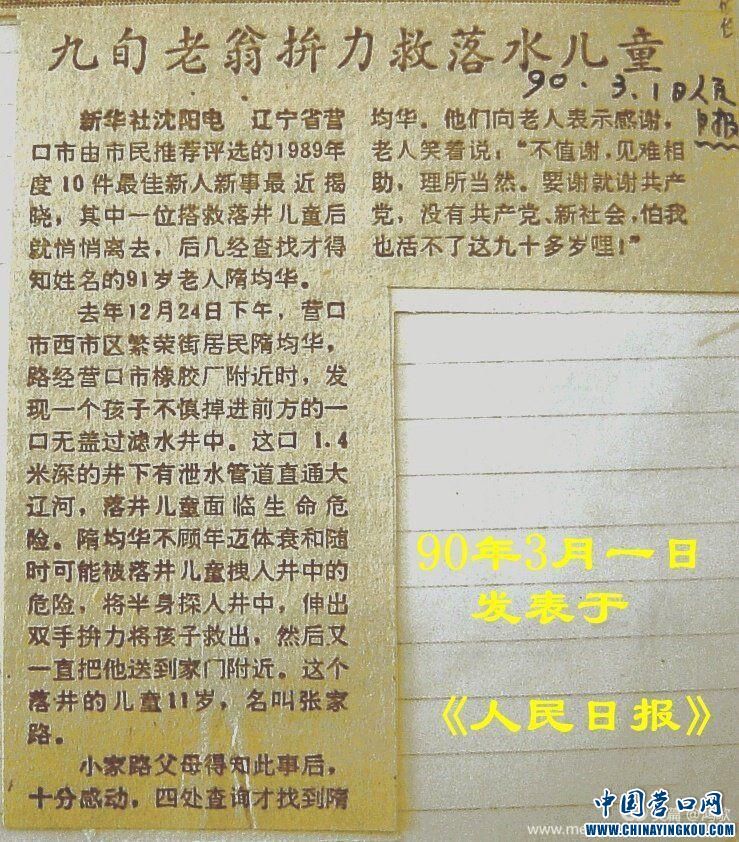 九旬老翁拚力救落水儿童
90.3.1日人民
日报
新华社沈阳电 辽宁省营
口市由市民推荐评选的1989年
度10件最佳新人新事最近揭
晓，其中一位搭救落井儿童后
就悄悄离去，后几经查找才得
知姓名的91岁老人隋均华。
去年12月24日下午，营口
市西市区繁荣街居民隋均华，
路经营口市橡胶厂附近时，发
现一个孩子不慎掉进前方的一
口无盖过滤水井中。这口 1.4
米深的井下有泄水管道直通大
辽河，落井儿童面临生命危
险。隋均华不顾年迈体衰和随
时可能被落井儿童拽入井中的
危险，将半身探入井中，伸出
双手拚力将孩子救出，然后又
一直把他送到家门附近。这个
落井的儿童11岁，名叫张家
路。
小家路父母得知此事后，
十分感动，四处查询才找到隋
均华。他们向老人表示感谢，
老人笑着说：“不值谢，见难相
助，理所当然。要谢就谢共产
党，没有共产党、新社会，怕我
也活不了这九十多岁哩！”
90年3月一日
发表于
《人民日报》
中国营口网
www.me
WWW.CHINAYINGKOU.COM